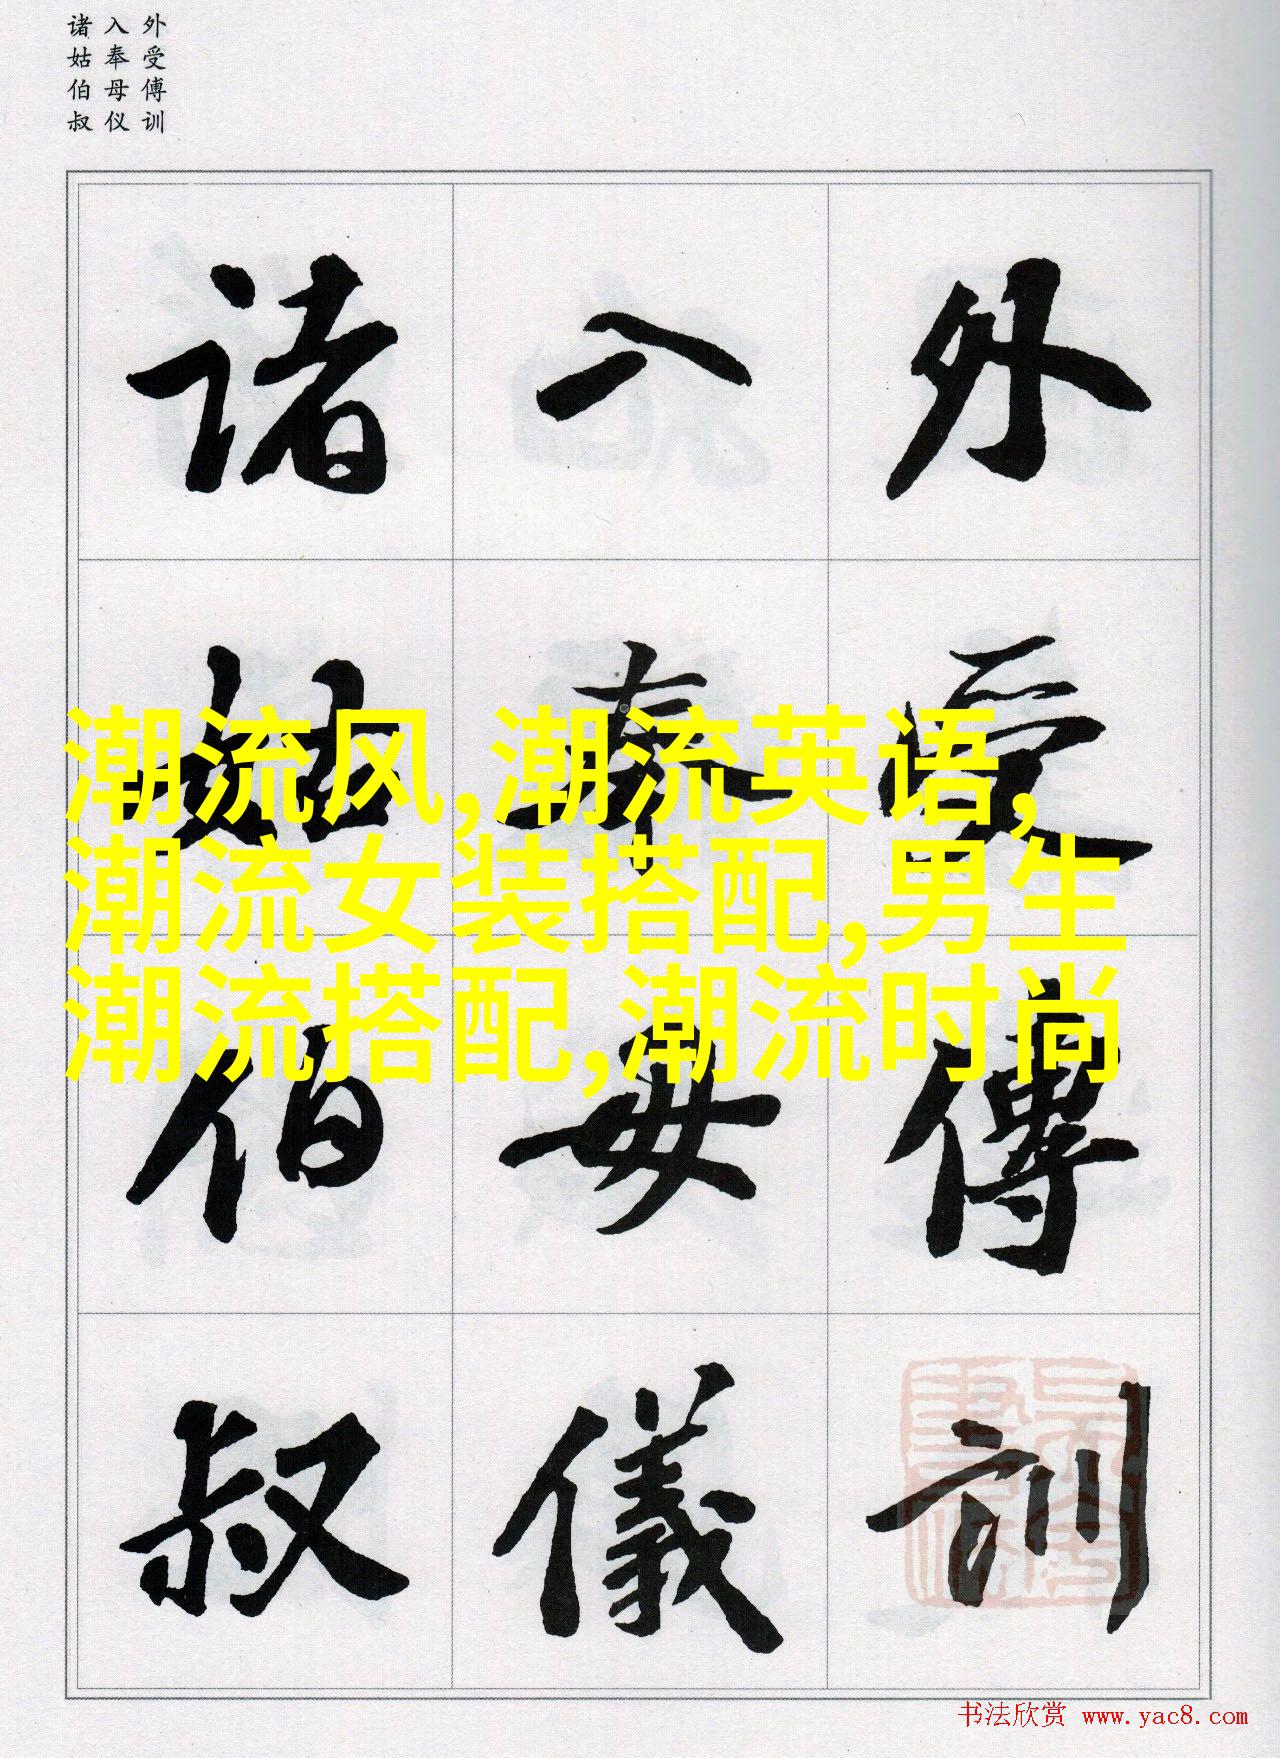 外受傅训
入奉母仪
诸姑伯叔
外受傅訓
入奉母儀
诸姑伯叔
潮流风,潮流英语,
潮流女装搭配,男生
潮流搭配,潮流时尚
书法欣赏 www.yac8.com